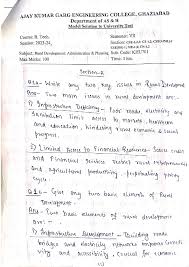 AJAY KUMAR GARG ENGINEERING COLLEGE, GHAZIABAD
Department of AS & H
Model Solution to University Test
Course: B. Tech.
Semester: VII
Session: 2023-24
Subject: Rural Development: Administration & Planning
Max Marks: 100
Time: 3 hrs.
Section-A
Write any two key issues in Rural Development
Ans- Two main issues in rural development are: -
1) Infrastructure Deficiency - Poor roads, electricity and
sanitation limit access to markets, healthcare
and education, growth.
2) Limited Access to Financial Resources - Scarce credit
and financial services restrict rural entrepreneurs
and agricultural productivity, perpetuating poverty
cycle.
Give any two basic elements of Rural
Development.
Ans- Two basic elements of rural development
are: -
1) Infrastructure Development - Building roads
bridges and electricity networks improves connecti-
vity and accessibility, crucial for economic